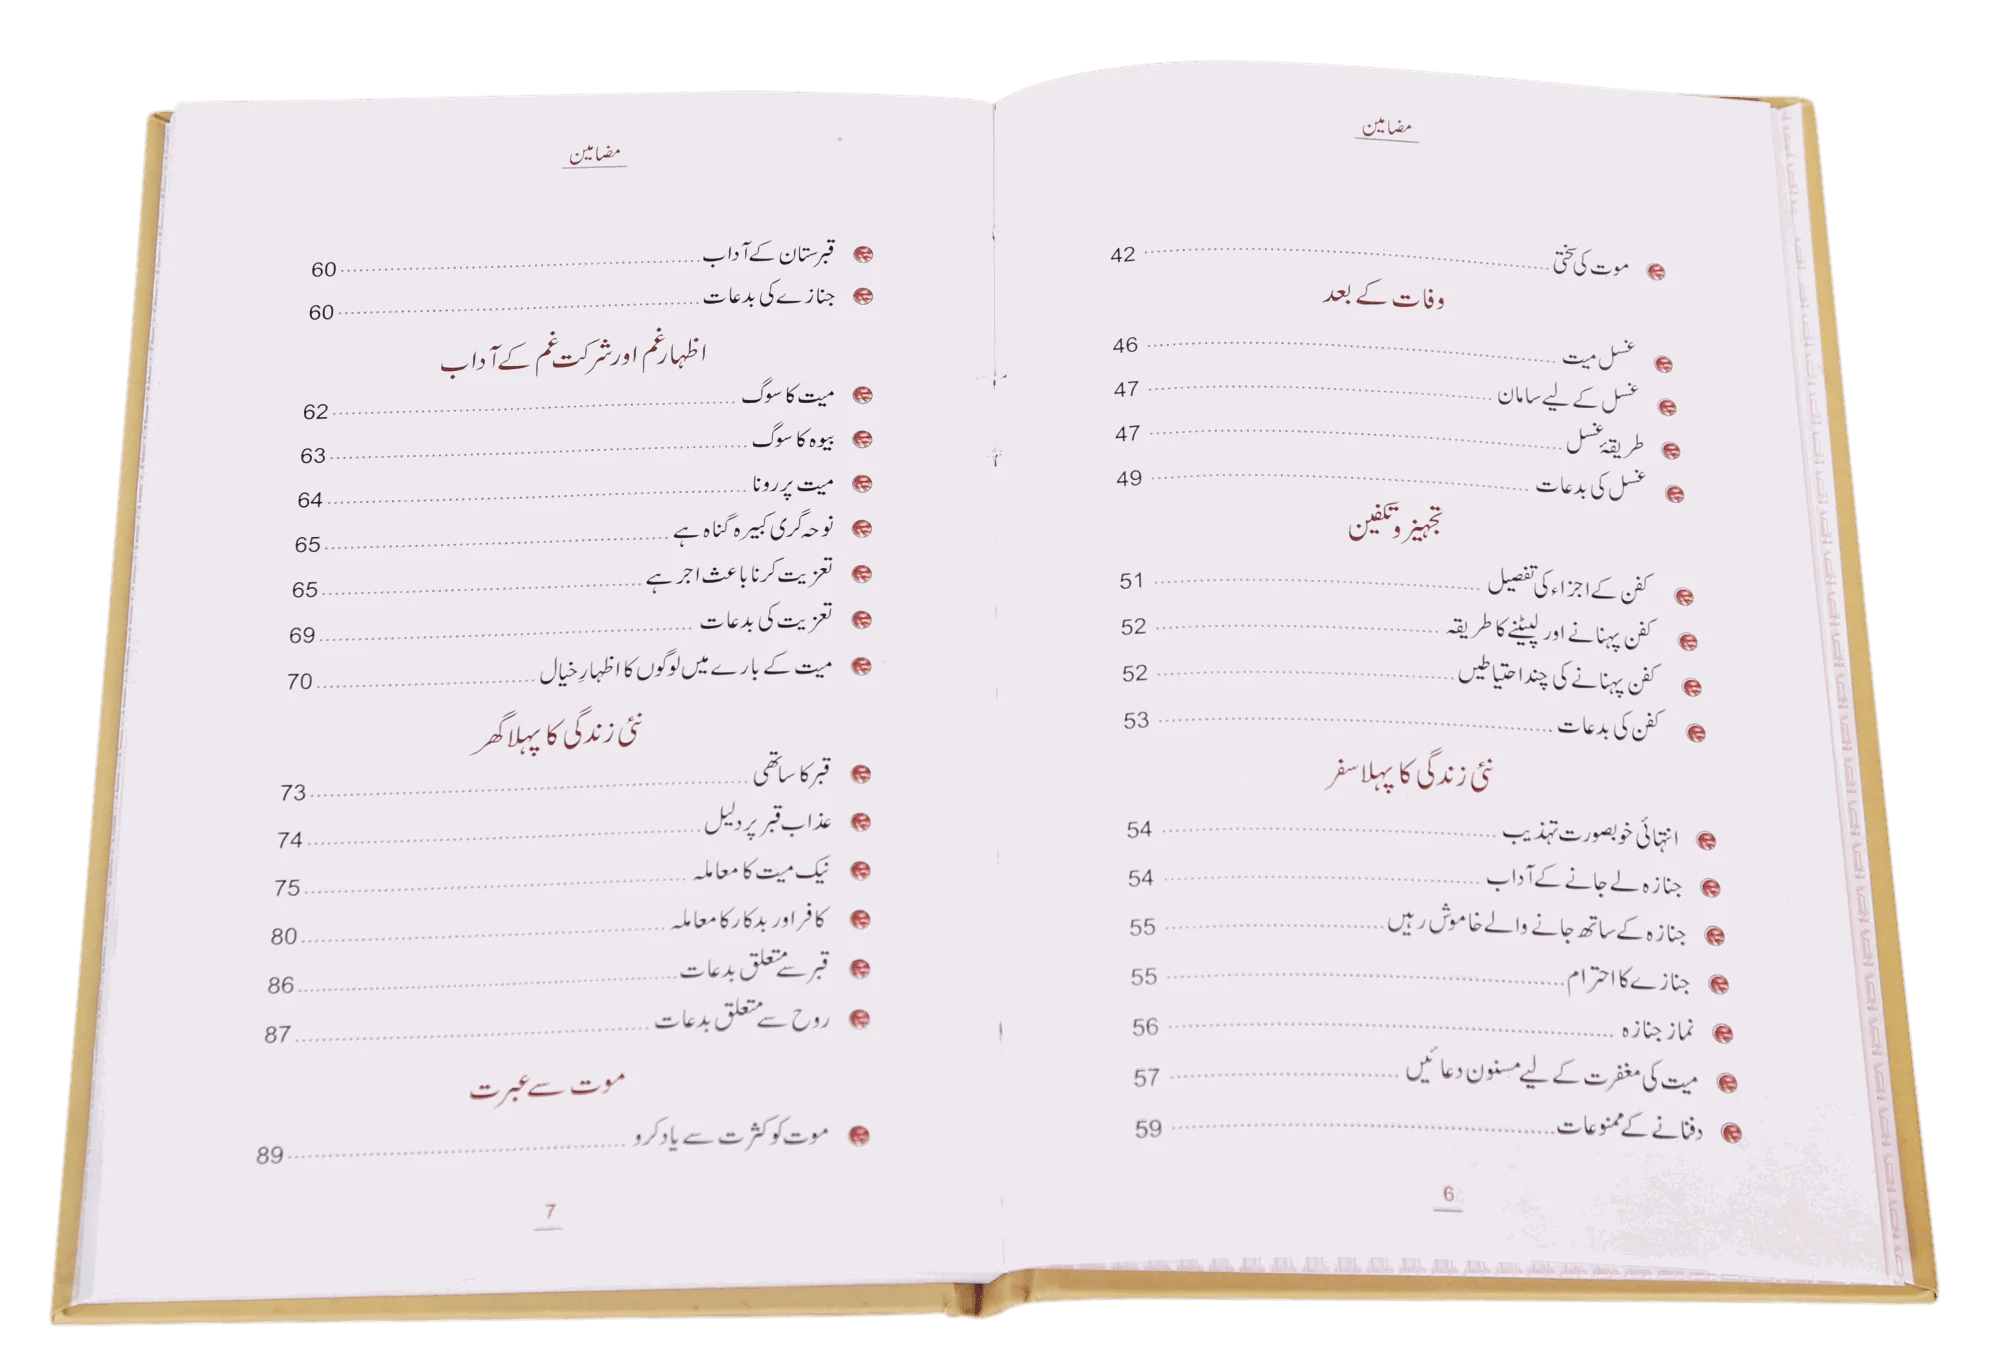 مضامین
موت کی سختی 42
وفات کے بعد
غسل میت 46
غسل کے لیے سامان 47
طریقۂ غسل 47
غسل کی بدعات 49
تجہیز و تکفین
کفن کے اجزاء کی تفصیل 51
کفن پہنانے اور لپیٹنے کا طریقہ 52
کفن پہنانے کی چند احتیاطیں 52
کفن کی بدعات 53
نئی زندگی کا پہلا سفر
انتہائی خوبصورت تہذیب 54
جنازہ لے جانے کے آداب 54
جنازہ کے ساتھ جانے والے خاموش رہیں 55
جنازے کا احترام 55
نماز جنازہ 56
میت کی مغفرت کے لیے مسنون دعائیں 57
دفنانے کے ممنوعات 59
6
مضامین
قبرستان کے آداب 60
جنازے کی بدعات 60
اظہار غم اور شرکت غم کے آداب
میت کا سوگ 62
بیوہ کا سوگ 63
میت پر رونا 64
نوحہ گری کبیرہ گناہ ہے 65
تعزیت کرنا باعث اجر ہے 65
تعزیت کی بدعات 69
میت کے بارے میں لوگوں کا اظہارِ خیال 70
نئی زندگی کا پہلا گھر
قبر کا ساتھی 73
عذاب قبر پر دلیل 74
نیک میت کا معاملہ 75
کافر اور بدکار کا معاملہ 80
قبر سے متعلق بدعات 86
روح سے متعلق بدعات 87
موت سے عبرت
موت کو کثرت سے یاد کرو 89
7